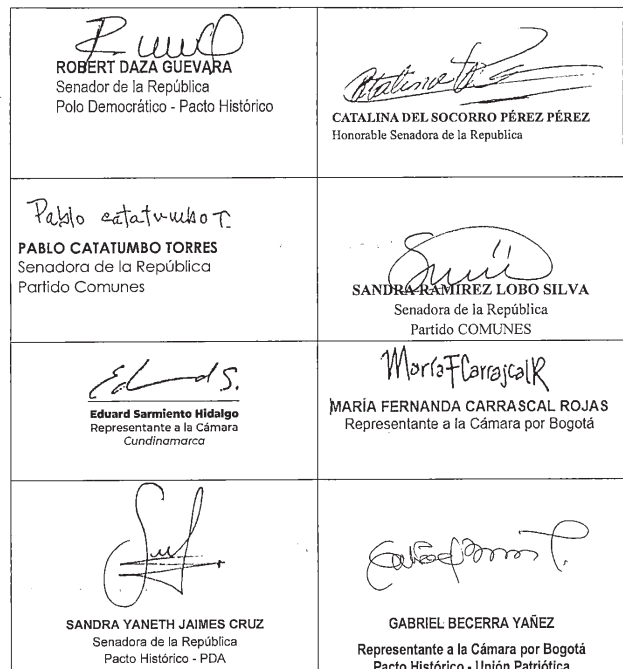 ROBERT DAZA GUEVARA
Senador de la República
Polo Democrático - Pacto Histórico
CATALINA DEL SOCORRO PÉREZ PÉREZ
Honorable Senadora de la Republica
Pablo catatumbo T.
PABLO CATATUMBO TORRES
Senadora de la República
Partido Comunes
SANDRA RAMIREZ LOBO SILVA
Senadora de la República
Partido COMUNES
Eduard Sarmiento Hidalgo
Representante a la Cámara
Cundinamarca
María F Carrascal R
MARÍA FERNANDA CARRASCAL ROJAS
Representante a la Cámara por Bogotá
SANDRA YANETH JAIMES CRUZ
Senadora de la República
Pacto Histórico - PDA
GABRIEL BECERRA YAÑEZ
Representante a la Cámara por Bogotá
Pacto Histórico - Unión Patriótica